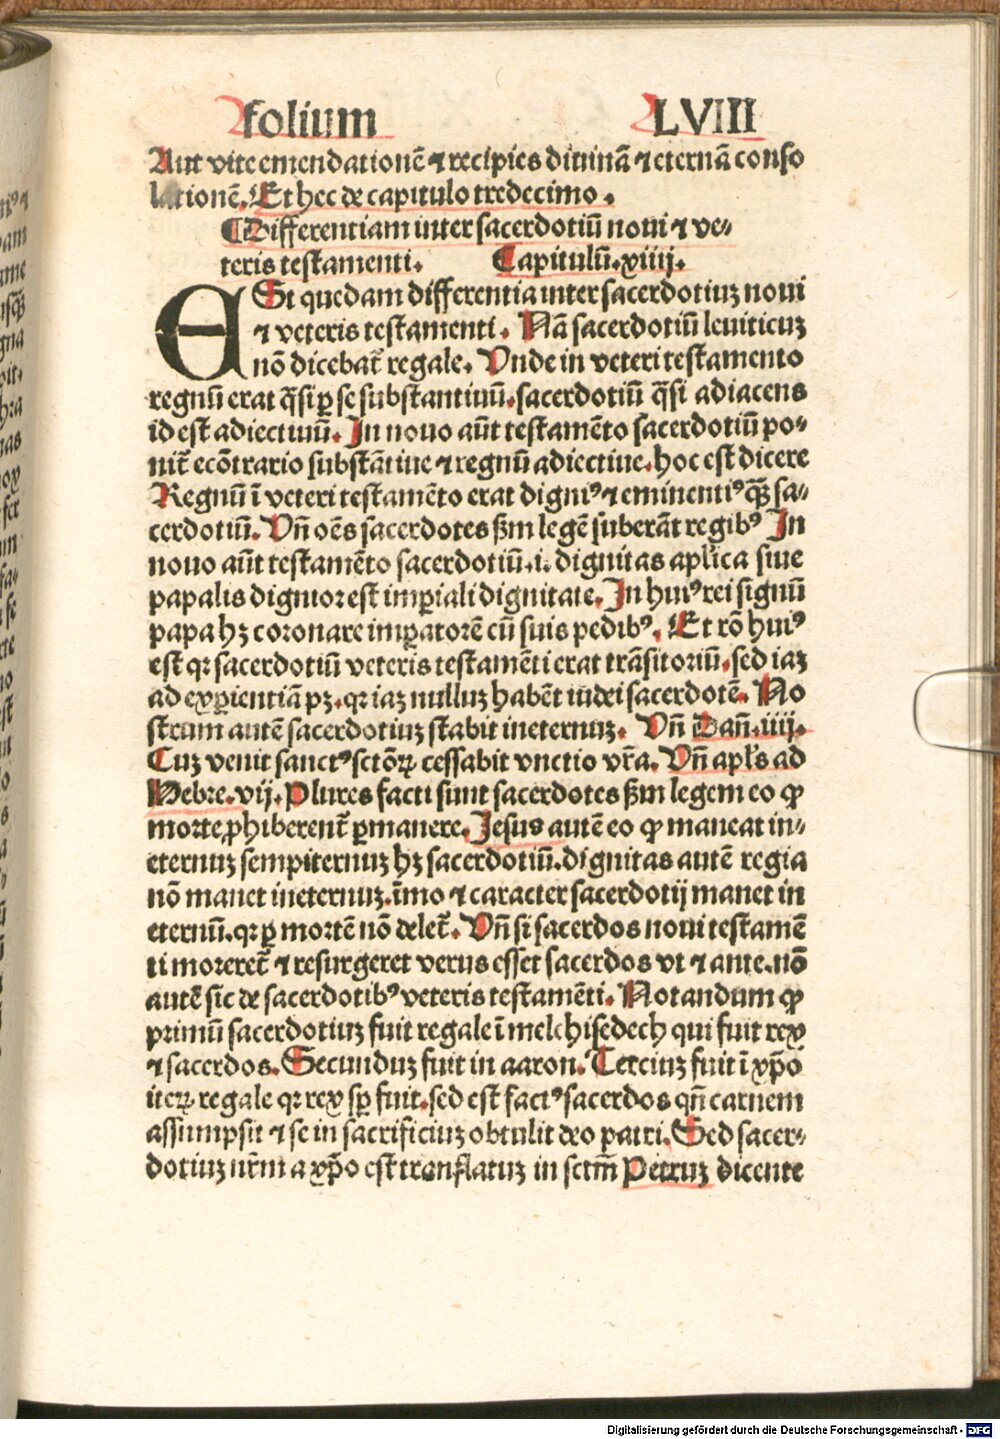 folium LVIII
Aut vite emendationē ⁊ recipies diuinā ⁊ eternā conso
lationē. Et hec de capitulo tredecimo.
¶Differentiam inter sacerdotiū noui ⁊ ve-
teris testamenti. Capitulū.xiiij.
ESt quedam differentia inter sacerdotiuꝫ noui
⁊ veteris testamenti. Nā sacerdotiū leuiticuꝫ
nō dicebat̄ regale. Vnde in veteri testamento
regnū erat q̄si ꝑ se substantiuū.sacerdotiū q̄si adiacens
id est adiectiuū. In nouo aūt testamēto sacerdotiū po-
nit̄ ecōtrario substātiue ⁊ regnū adiectiue.hoc est dicere
Regnū ī veteri testamēto erat digniꝰ ⁊ eminentiꝰ qꝫ̄ sa-
cerdotiū. Vn̄ oēs sacerdotes ẜm legē suberāt regibꝰ In
nouo aūt testamēto sacerdotiū.i. dignitas apl'ica siue
papalis dignior est imꝑiali dignitate. In huiꝰ rei signū
papa hꝫ coronare imꝑatorē cū suis pedibꝰ. Et rō huiꝰ
est qꝛ sacerdotiū veteris testamēti erat trāsitoriū.sed iaꝫ
ad exꝑientiā pꝫ.qꝛ iaꝫ nulluꝫ habēt iudei sacerdotē. No
strum autē sacerdotiuꝫ stabit ineternuꝫ. Vn̄ Dan̄.iiij.
Cuꝫ venit sanctꝰ sctōꝝ cessabit vnctio vr̄a. Vn̄ apl's ad
Hebre.vij. Plures facti sunt sacerdotes ẜm legem eo ꝙ
morte ꝓhiberent̄ ꝑmanere. Jesus autē eo ꝙ maneat in-
eternuꝫ sempiternuꝫ hꝫ sacerdotiū.dignitas autē regia
nō manet ineternuꝫ.īmo ⁊ caracter sacerdotij manet in
eternū.qꝛ ꝑ mortē nō delet̄. Vn̄ si sacerdos noui testamē
ti moreret̄ ⁊ resurgeret verus esset sacerdos vt ⁊ ante.nō
autē sic de sacerdotibꝰ veteris testamēti. Notandum ꝙ
primū sacerdotiuꝫ fuit regale ī melchisedech qui fuit rex
⁊ sacerdos. Secunduꝫ fuit in aaron. Terciuꝫ fuit ī xp̄o
iteꝝ regale qꝛ rex sꝑ fuit.sed est factꝰ sacerdos qn̄ carnem
assumpsit ⁊ se in sacrificiuꝫ obtulit deo patri. Sed sacer-
dotiuꝫ nr̄m a xp̄o est translatuꝫ in sctm̄ Petruꝫ dicente
Digitalisierung gefördert durch die Deutsche Forschungsgemeinschaft - DFG